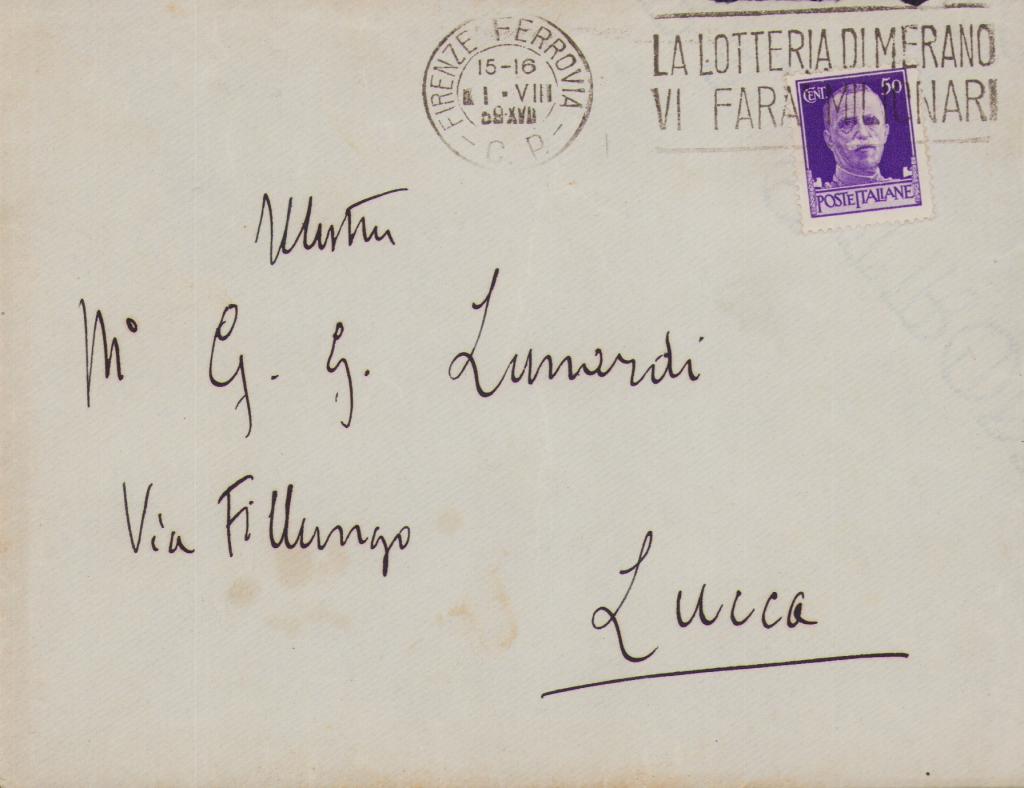 FIRENZE FERROVIA
15-16
1·VIII
39·XVII
- C. P. -
LA LOTTERIA DI MERANO
VI FARA' MILIONARI
CENT. 50
POSTE ITALIANE
M° G. G. Lunardi
Via Fillungo
Lucca